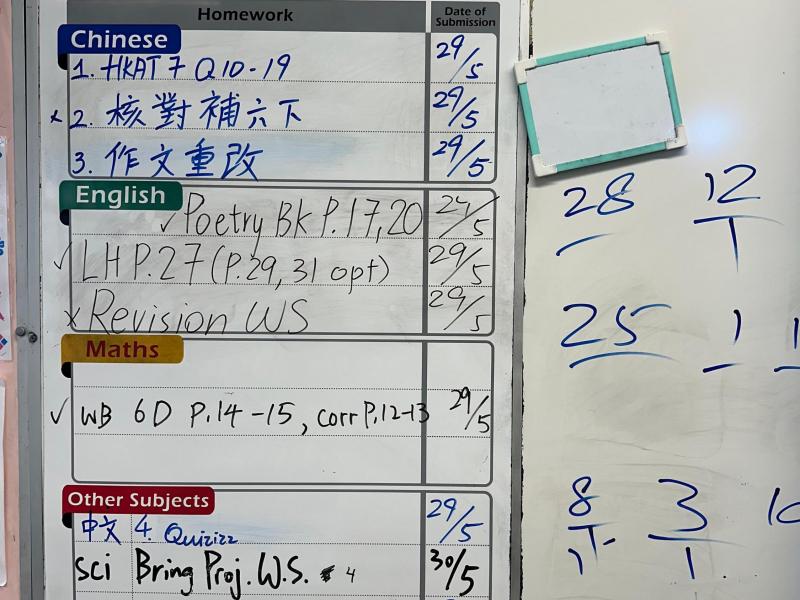 Homework Date of Submission
Chinese
1. HKAT 7 Q10-19 29/5
x 2. 核對補六下 29/5
3. 作文重改 29/5
English
✓ Poetry Bk P.17,20 24/5
✓ LH P.27 (P.29, 31 opt) 29/5
x Revision WS 29/5
Maths
✓ WB 6D P.14-15, corr P.12-13 29/5
Other Subjects
中文 4. Quizizz 29/5
sci Bring Proj. W.S. 4 30/5
28 12
1
25 1 1
8 3 10
1 1